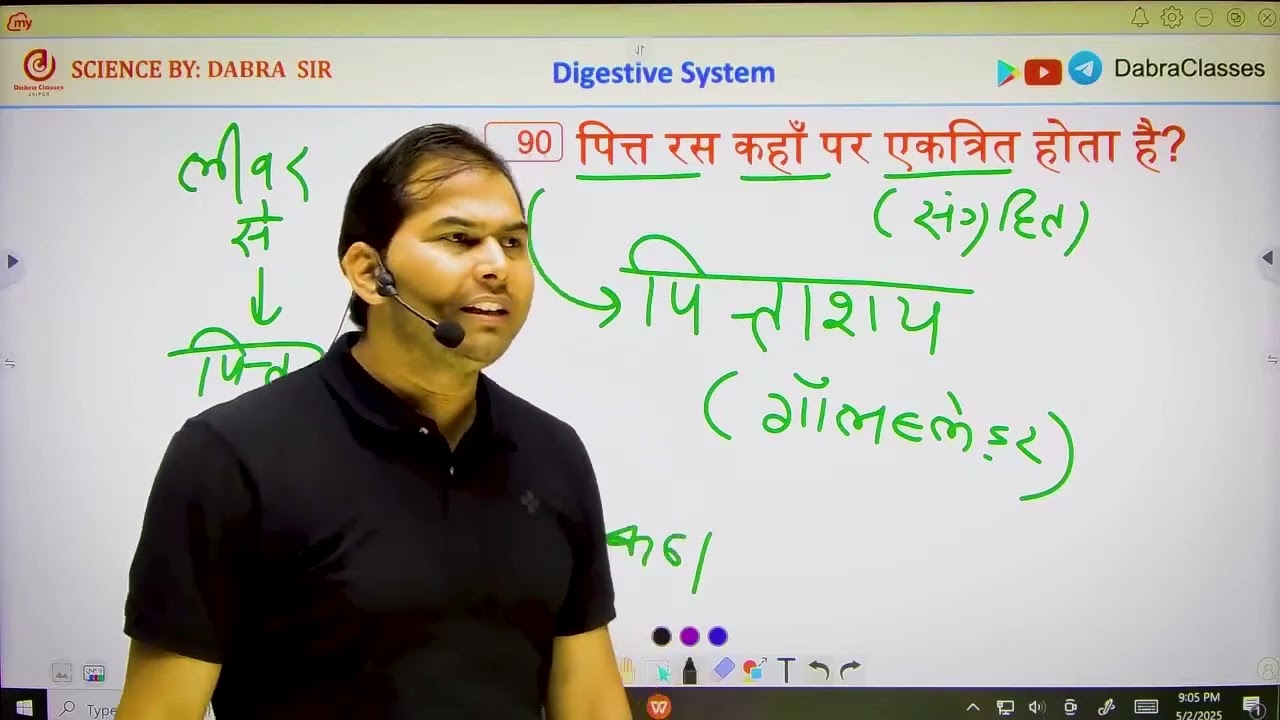 my
Dabra Classes
JAIPUR
SCIENCE BY: DABRA SIR
Digestive System
DabraClasses
90 पित्त रस कहाँ पर एकत्रित होता है?
(संग्रहित)
लीवर
से
पित्त
पित्ताशय
(गॉलब्लेडर)
T
Type
W
9:05 PM
5/2/2025
1